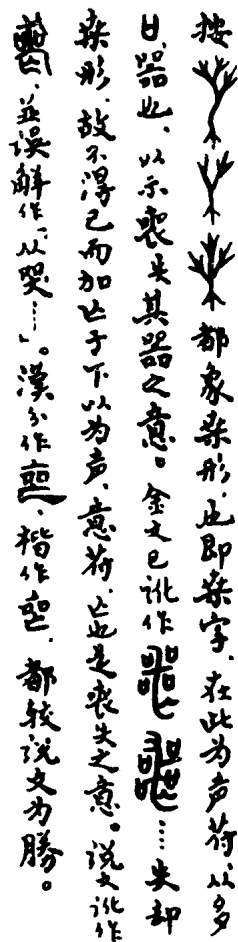 按都象桑形,也即桑字,在此为声符,从多
口,器也,以示喪失其器之意。金文已訛作……失却
桑形,故不得已而加亾于下以为声,意符,亾也是喪失之意。说文訛作
,並误解作“从哭……”。漢分作,楷作,都较说文为勝。